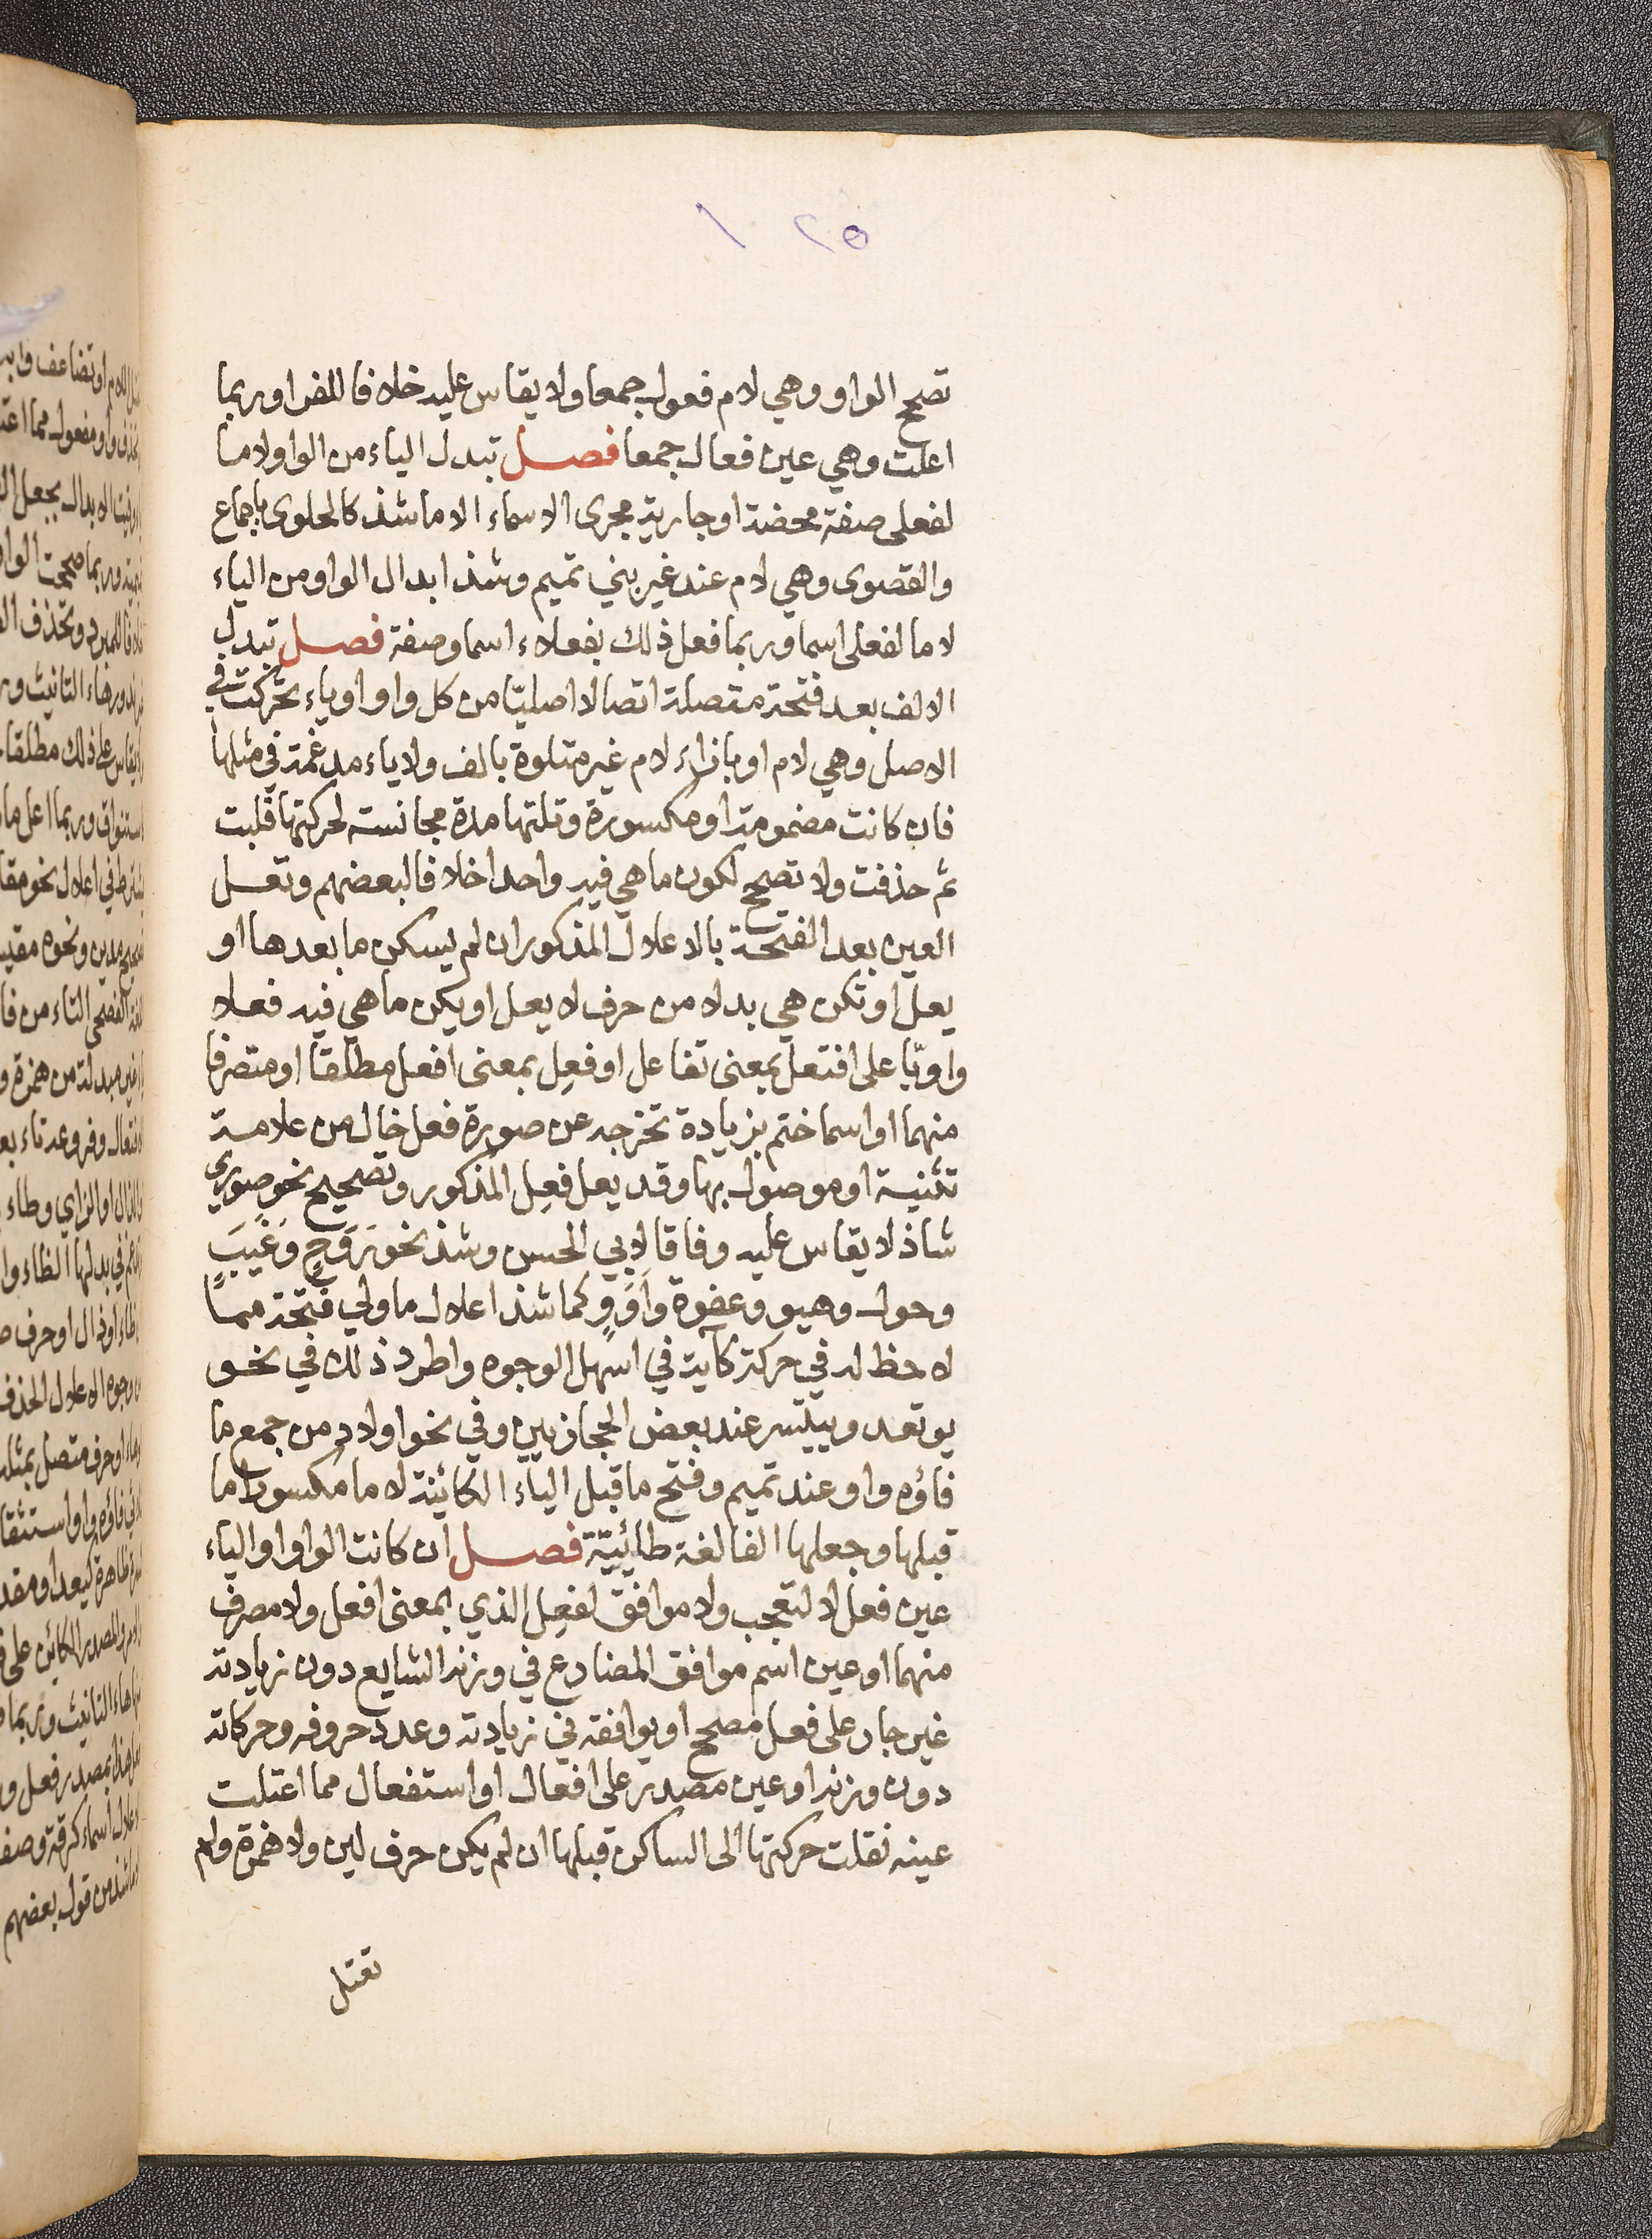 ١ ٢٥
تصح الواو وهي لام فعول جمعا ولا يقاس عليه خلافا للفراو ربما
اعلت وهي عين فعال جمعا فصل تبدل الياء من الواو لاما
لفعلى صفة محضة او جارية مجرى الاسماء الا ما شذ كالحلوى باجماع
والقصوى وهي لام عند غير بني تميم وشذ ابدال الواو من الياء
لاما لفعلى اسما وربما فعل ذلك بفعلاء اسما وصفة فصل تبدل
الالف بعد فتحة متصلة اتصالا اصليّا من كل واو او ياء تحركت في
الاصل وهي لام او بازاء لام غير متلوة بالف ولا ياء مدغمة في مثلها
فان كانت مضمومة او مكسورة وتلتها مدة مجانسة لحركتها قلبت
ثم حذفت ولا تصح لكون ما هي فيه واحدا خلافا لبعضهم وتعل
العين بعد الفتحة بالاعلال المذكور ان لم يسكن ما بعدها او
يعل او تكن هي بدلا من حرف لا يعل او يكن ما هي فيه فعلا
واويّا على افتعل بمعنى تفاعل او فعِل بمعنى افعل مطلقا او متصرفا
منهما او اسما ختم بزيادة تخرجه عن صورة فعل خال من علامة
تثنية او موصول بها وقد يعل فعِل المذكور وتصحيح نحو صورى
شاذ لا يقاس عليه وفاقا لابي الحسن وشذ نحو رَوَحٍ وَغَيَبٍ
وحول وهيو وعفوة واَوَوٍ كما شذ اعلال ما ولي فتحة مما
لا حظ له في حركة كآية في اسهل الوجوه واطرد ذلك في نحو
يوتعد وييتسر عند بعض الحجازيين وفي نحو اولاد من جمع ما
فاؤه واو عند تميم وفتح ما قبل الياء الكائنة لاما مكسورا ما
قبلها وجعلها الفا لغة طائيّة فصل ان كانت الواو او الياء
عين فعل لا لتعجب ولا موافق لفعِل الذي بمعنى افعل ولا مصرف
منهما او عين اسم موافق المضارع في وزنه الشايع دون زيادته
غير جار على فعل مصحح او يوافقه في زيادته وعدد حروفه وحركاته
دون وزنه او عين مصدر على افعال او استفعال مما اعتلت
عينه نقلت حركتها الى الساكن قبلها ان لم يكن حرف لين ولا همزة ولم
تعتل